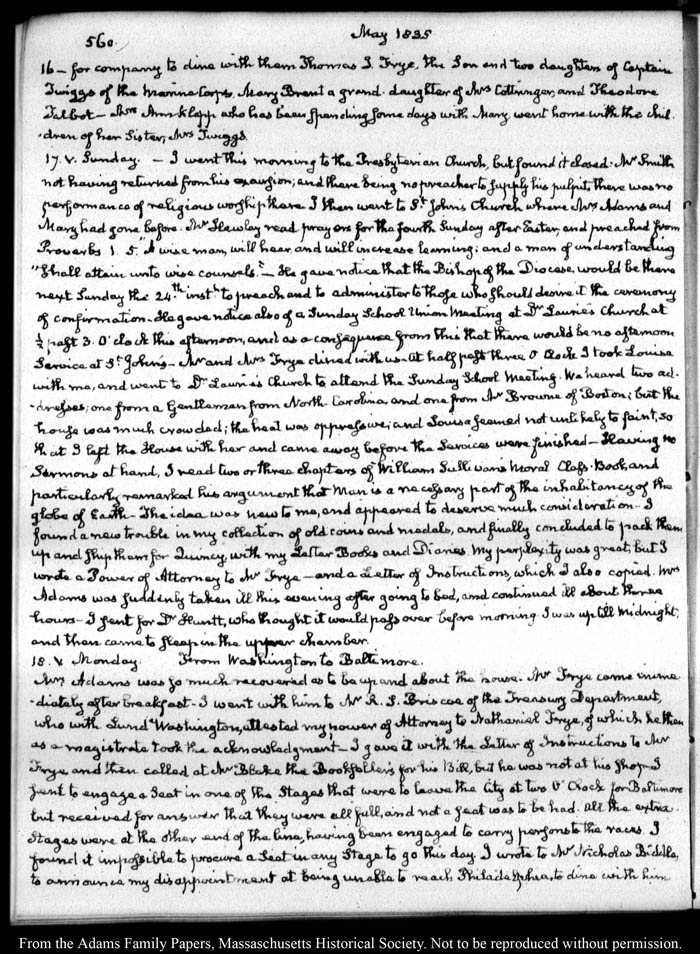 560.
May 1835
16 – for company to dine with them Thomas J. Frye, the Son and two daughters of Captain
Twiggs of the Marine Corps, Mary Brent a grand-daughter of Mrs Cottringer, and Theodore
Talbot – Ann Klapp who has been spending some days with Mary, went home with the chil-
-dren of her Sister, Mrs Twiggs.
17. V. Sunday. – I went this morning to the Presbyterian Church, but found it closed. Mr Smith
not having returned from his excursion; and there being no preacher to supply his pulpit, there was no
performance of religious worship there. I then went to St John's Church where Mrs Adams and
Mary had gone before. Mr Hawley read prayers for the fourth Sunday after Easter, and preached from
Proverbs 1. 5. "A wise man, will hear, and will increase learning; and a man of understanding
"shall attain unto wise counsels." – He gave notice that the Bishop of the Diocese, would be there
next Sunday the 24th instt to preach and to administer to those who should desire it the ceremony
of confirmation – He gave notice also of a Sunday School Union Meeting at Dr Laurie's Church at
½ past 3. O'Clock this afternoon, and as a consequence from this that there would be no afternoon
Service at St John's – Mr and Mrs Frye dined with us – At half past three O'Clock I took Louisa
with me, and went to Dr Laurie's Church to attend the Sunday School Meeting. We heard two ad-
-dresses; one from a Gentleman from North-Carolina, and one from Mr Browne of Boston; but the
house was much crowded; the heat was oppressive; and Louisa seemed not unlikely to faint, so
that I left the House with her and came away before the Services were finished – Having no
Sermons at hand, I read two or three chapters of William Sullivan's Moral Class-Book, and
particularly remarked his argument that Man is a necessary part of the inhabitancy of the
globe of Earth – The idea was new to me, and appeared to deserve much consideration – I
found a new trouble in my collection of old coins and medals, and finally concluded to pack them
up and ship them for Quincy, with my Letter Books and Diaries. My perplexity was great, but I
wrote a Power of Attorney to Mr Frye – and a Letter of Instructions, which I also copied. Mrs
Adams was suddenly taken ill this evening after going to bed, and continued ill about three
hours – I sent for Dr Huntt, who thought it would pass over before morning. I was up till Midnight,
and then came to sleep in the upper chamber.
18. V. Monday. From Washington to Baltimore.
Mrs Adams was so much recovered as to be up and about the house. Mr Frye came imme-
-diately after breakfast – I went with him to Mr R. S. Briscoe of the Treasury Department,
who with Lund Washington, attested my power of Attorney to Nathaniel Frye, of which he then
as a magistrate took the acknowledgment – I gave it with the Letter of Instructions to Mr
Frye and then called at Mr Blake the Bookseller's for his Bill, but he was not at his shop – I
sent to engage a Seat in one of the Stages that were to leave the City at two O'Clock for Baltimore
but received for answer that they were all full, and not a seat was to be had. All the extra
Stages were at the other end of the line, having been engaged to carry persons to the races. I
found it impossible to procure a Seat in any Stage to go this day. I wrote to Mr Nicholas Biddle,
to announce my disappointment at being unable to reach Philadelphia, to dine with him
From the Adams Family Papers, Massachusetts Historical Society. Not to be reproduced without permission.